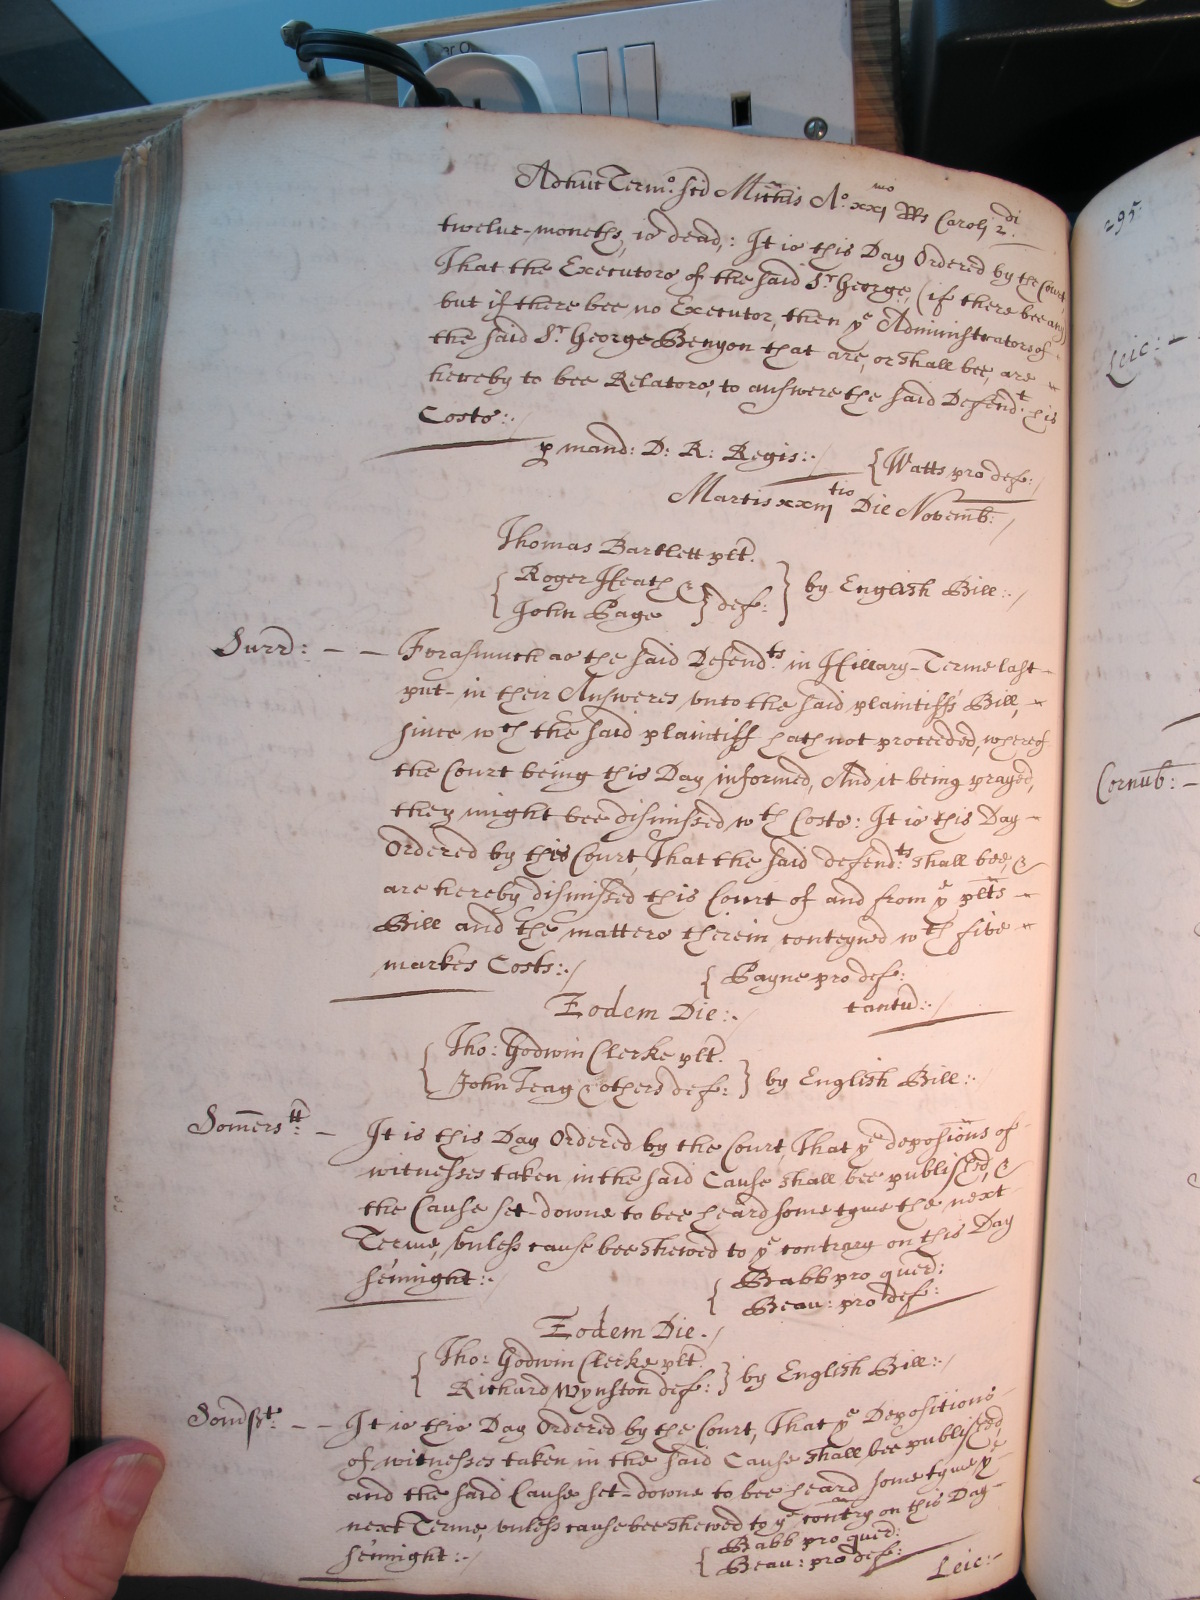 Adhuc Termo: scd Michis Ao: xxjmo RRs Caroli 2di:
twelve-moneths, is dead,: It is this Day Ordered by the Court,
That the Executors of the said Sr George, (if there bee any)
but if there bee no Executor, then ye Administrators of
the said Sr George Benyon that are, or shall bee, are
hereby to bee Relators, to answere the said Defendt: his
Costs:./
p mand: D: R: Regis:./ {Watts pro def:
Martis xxiijtio Die Novemb:./
Thomas Bartlett plt.
{Roger Heath &
John Page} def:} by English Bill:./
Surr: - - Forasmuch as the said Defendts: in Hillary-Terme last
put-in their Answeres unto the said plaintiffs Bill,
since wch the said plaintiff hath not proceeded, whereof
the Court being this Day informed, And it being prayed,
they might bee dismissed wth Costs: It is this Day
Ordered by this Court, That the said defend:ts shall bee, &
are hereby dismissed this Court of and from ye plts
Bill and the matters therein conteyned wth five
markes Costs:./ {Payne pro def:
tantu:./
Eodem Die:./
{Tho: Godwin Clerke plt.
John Teag & others def:} by English Bill:./
Somerstt: - It is this Day Ordered by the Court, That ye deposions of
witnesses taken in the said Cause shall bee published, &
the Cause set-downe to bee heard some tyme the next
Terme, unless cause bee shewed to ye contrary on this Day
sennight:./ {Babb pro quer:
Beau: pro def:
Eodem Die./
{Tho: Godwin Clerke plt.
Richard Wynston def:} by English Bill:./
Somsst: - - It is this Day Ordered by the Court, That ye Depositions
of witnesses taken in the said Cause shall bee published,
and the said Cause set-downe to bee heard some tyme ye
next Terme, unless cause bee shewed to ye contry on this Day
sennight:./ {Babb pro quer:
Beau: pro def:
Leic:-
295
Leic: -
Cornub: -